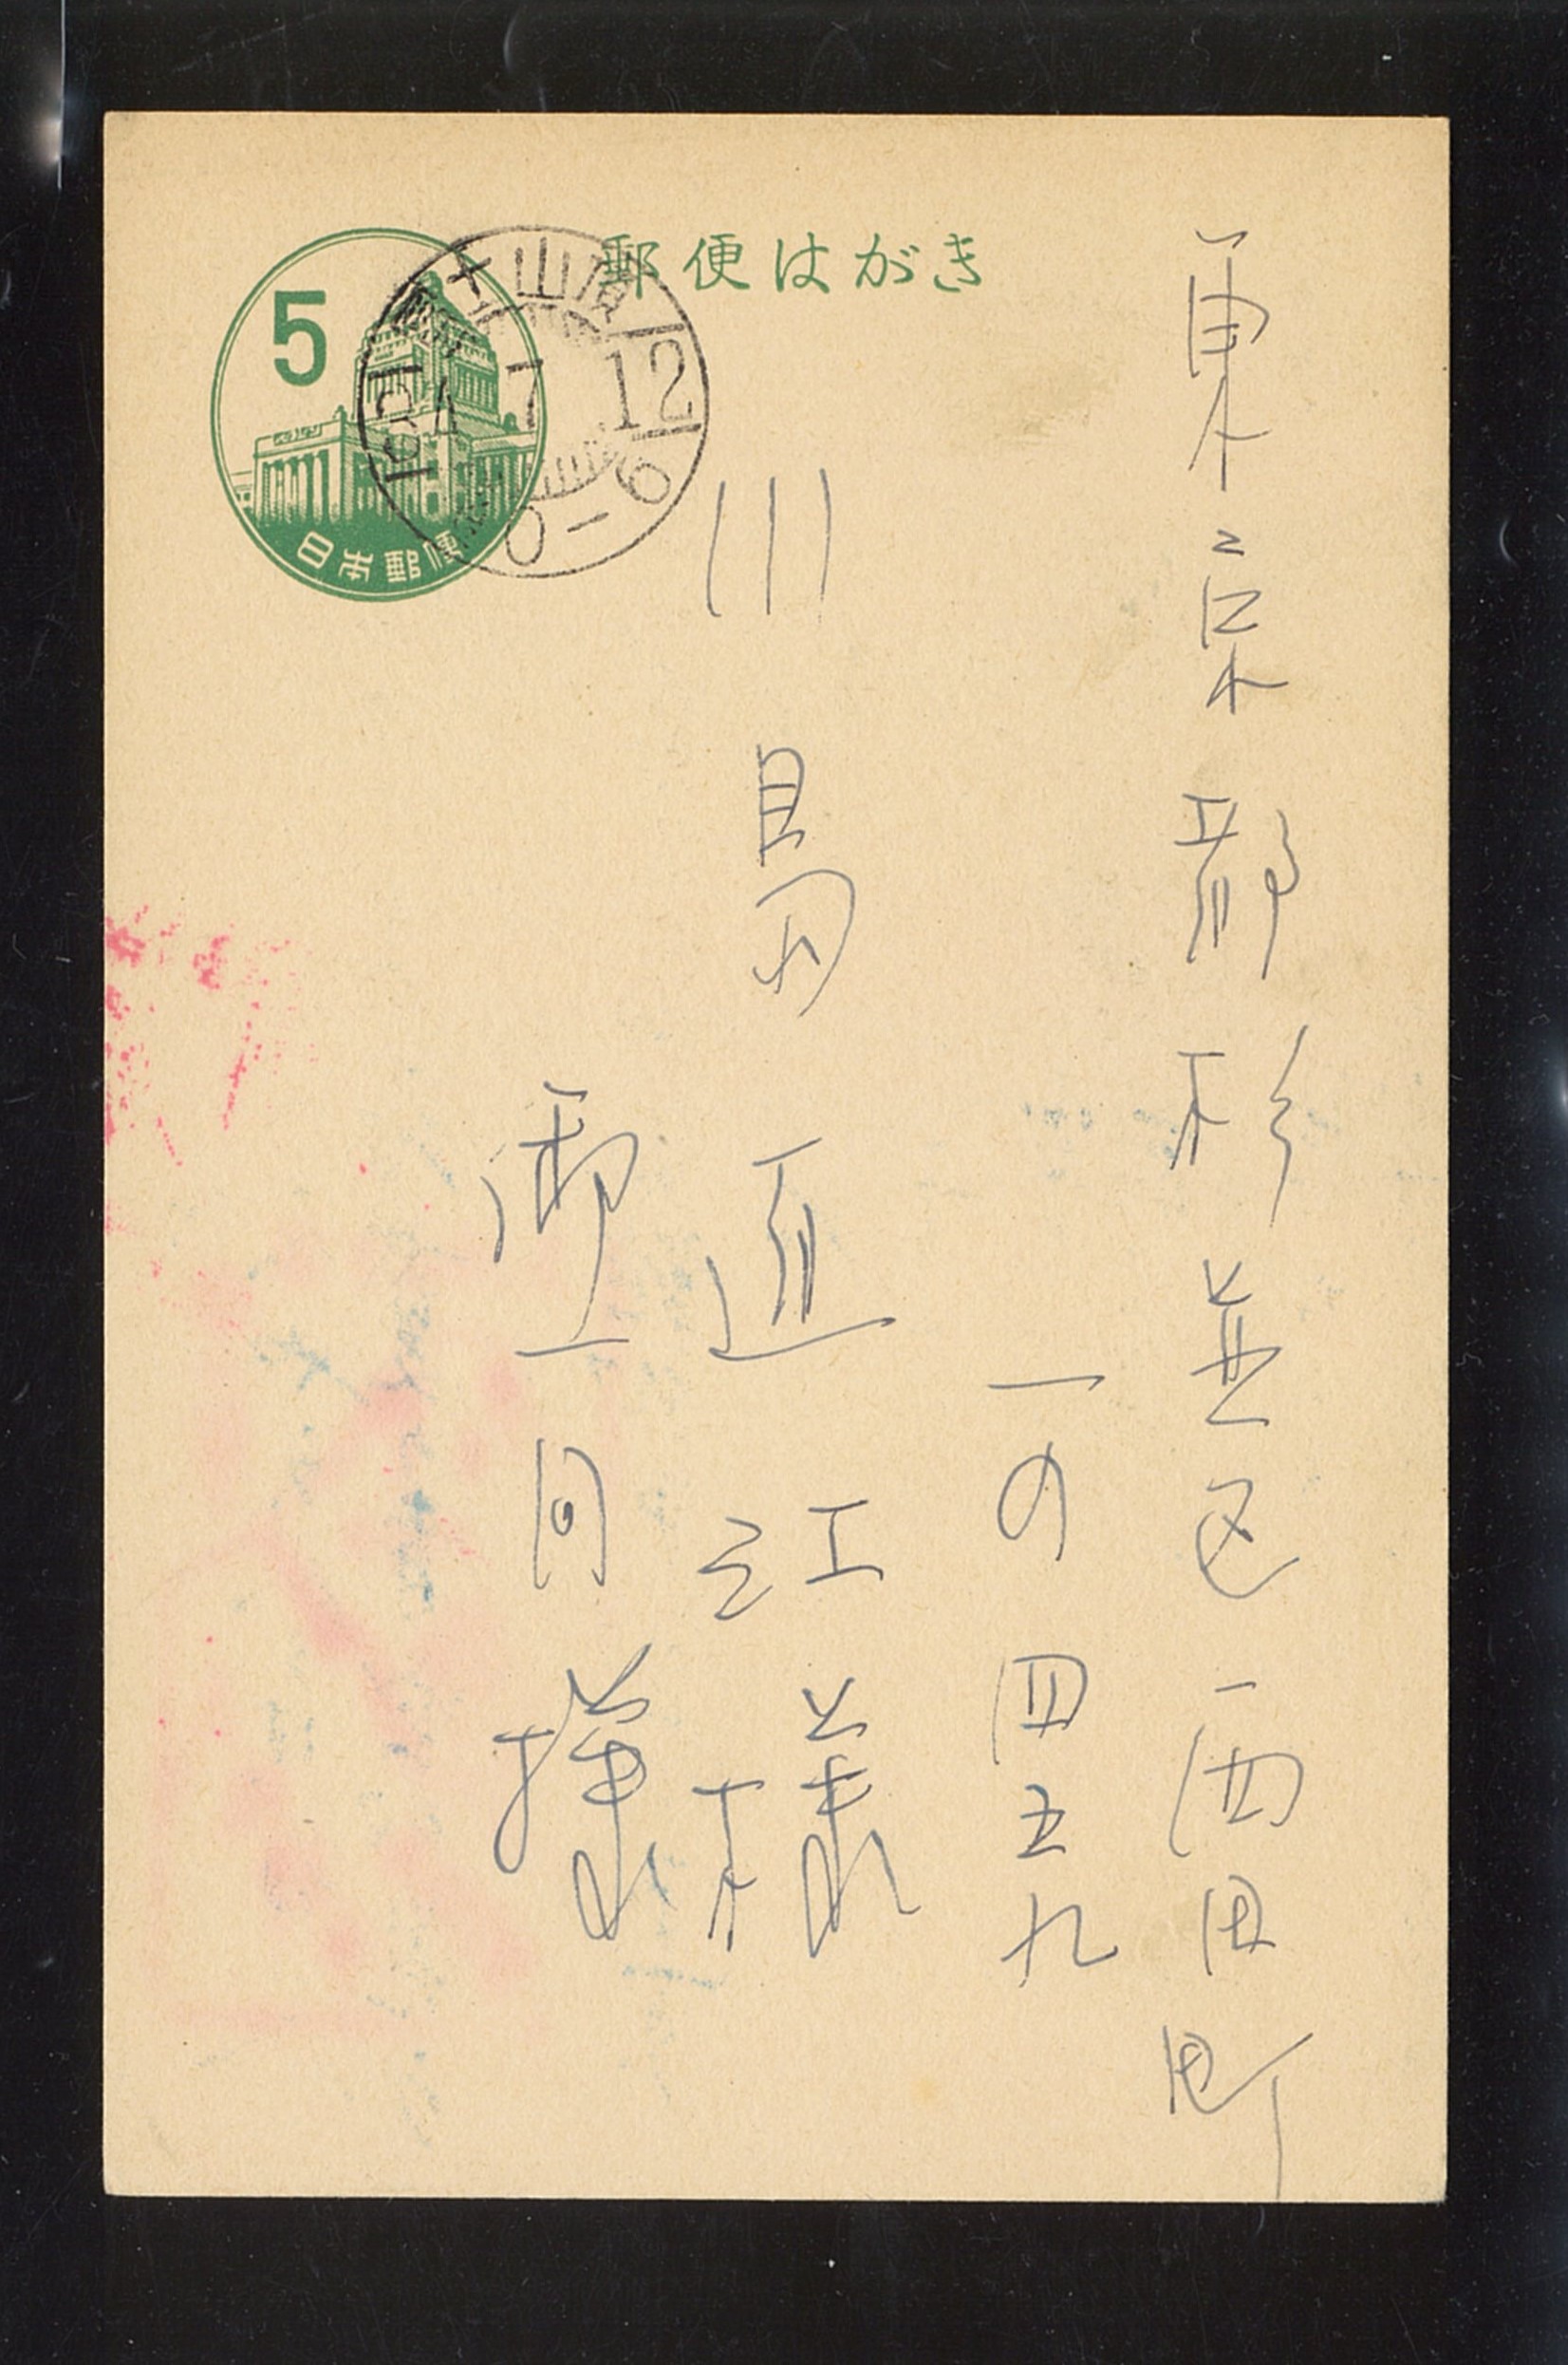 郵便はがき
5
日本郵便
富士山頂
7 12
0-6
東京都杉並区西田町
一の四五九
川島直江様
御一同様